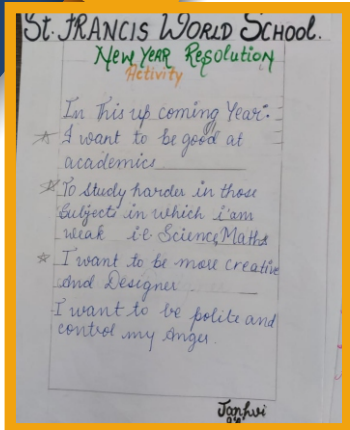 St. FRANCIS WORLD SCHOOL.
NEW YEAR RESOLUTION
Activity
In this up coming Year:
I want to be good at
academics
To study harder in those
Subjects in which i'am
weak i.e Science, Maths
I want to be more creative
And Designer
I want to be polite and
control my Anger.
Janhvi